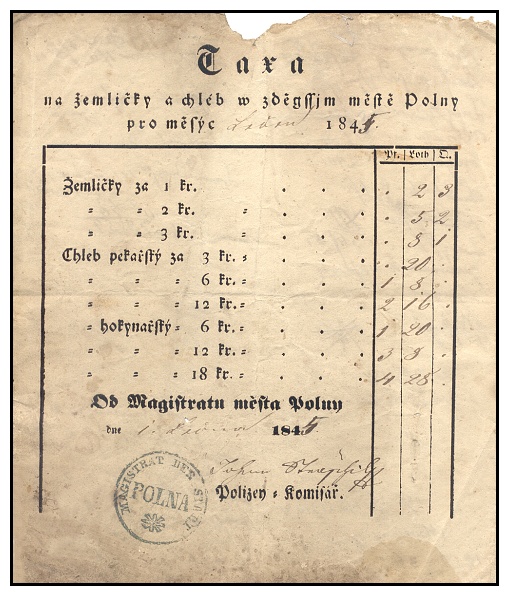 Taxa
na žemličky a chléb w zděgssjm městě Polny
pro měsýc Leden 1845.
Pf. Loth Q.
Žemličky za 1 kr. . . . . 2 3
" " 2 kr. " . . . . 5 2
" " 3 kr. " . . . . 8 1
Chleb pekařský za 3 kr. " . . . . 20 .
" " " 6 kr. " . . . 1 8 .
" " " 12 kr. " . . . 2 16 .
" hokynařský " 6 kr. " . . . 1 20 .
" " " 12 kr. " . . . 3 8 .
" " " 18 kr. " . . . 4 28 .
Od Magistratu města Polny
dne 1. Ledna 1845.
Johann
Polizey = Komisář.
MAGISTRAT DER STADT
POLNA